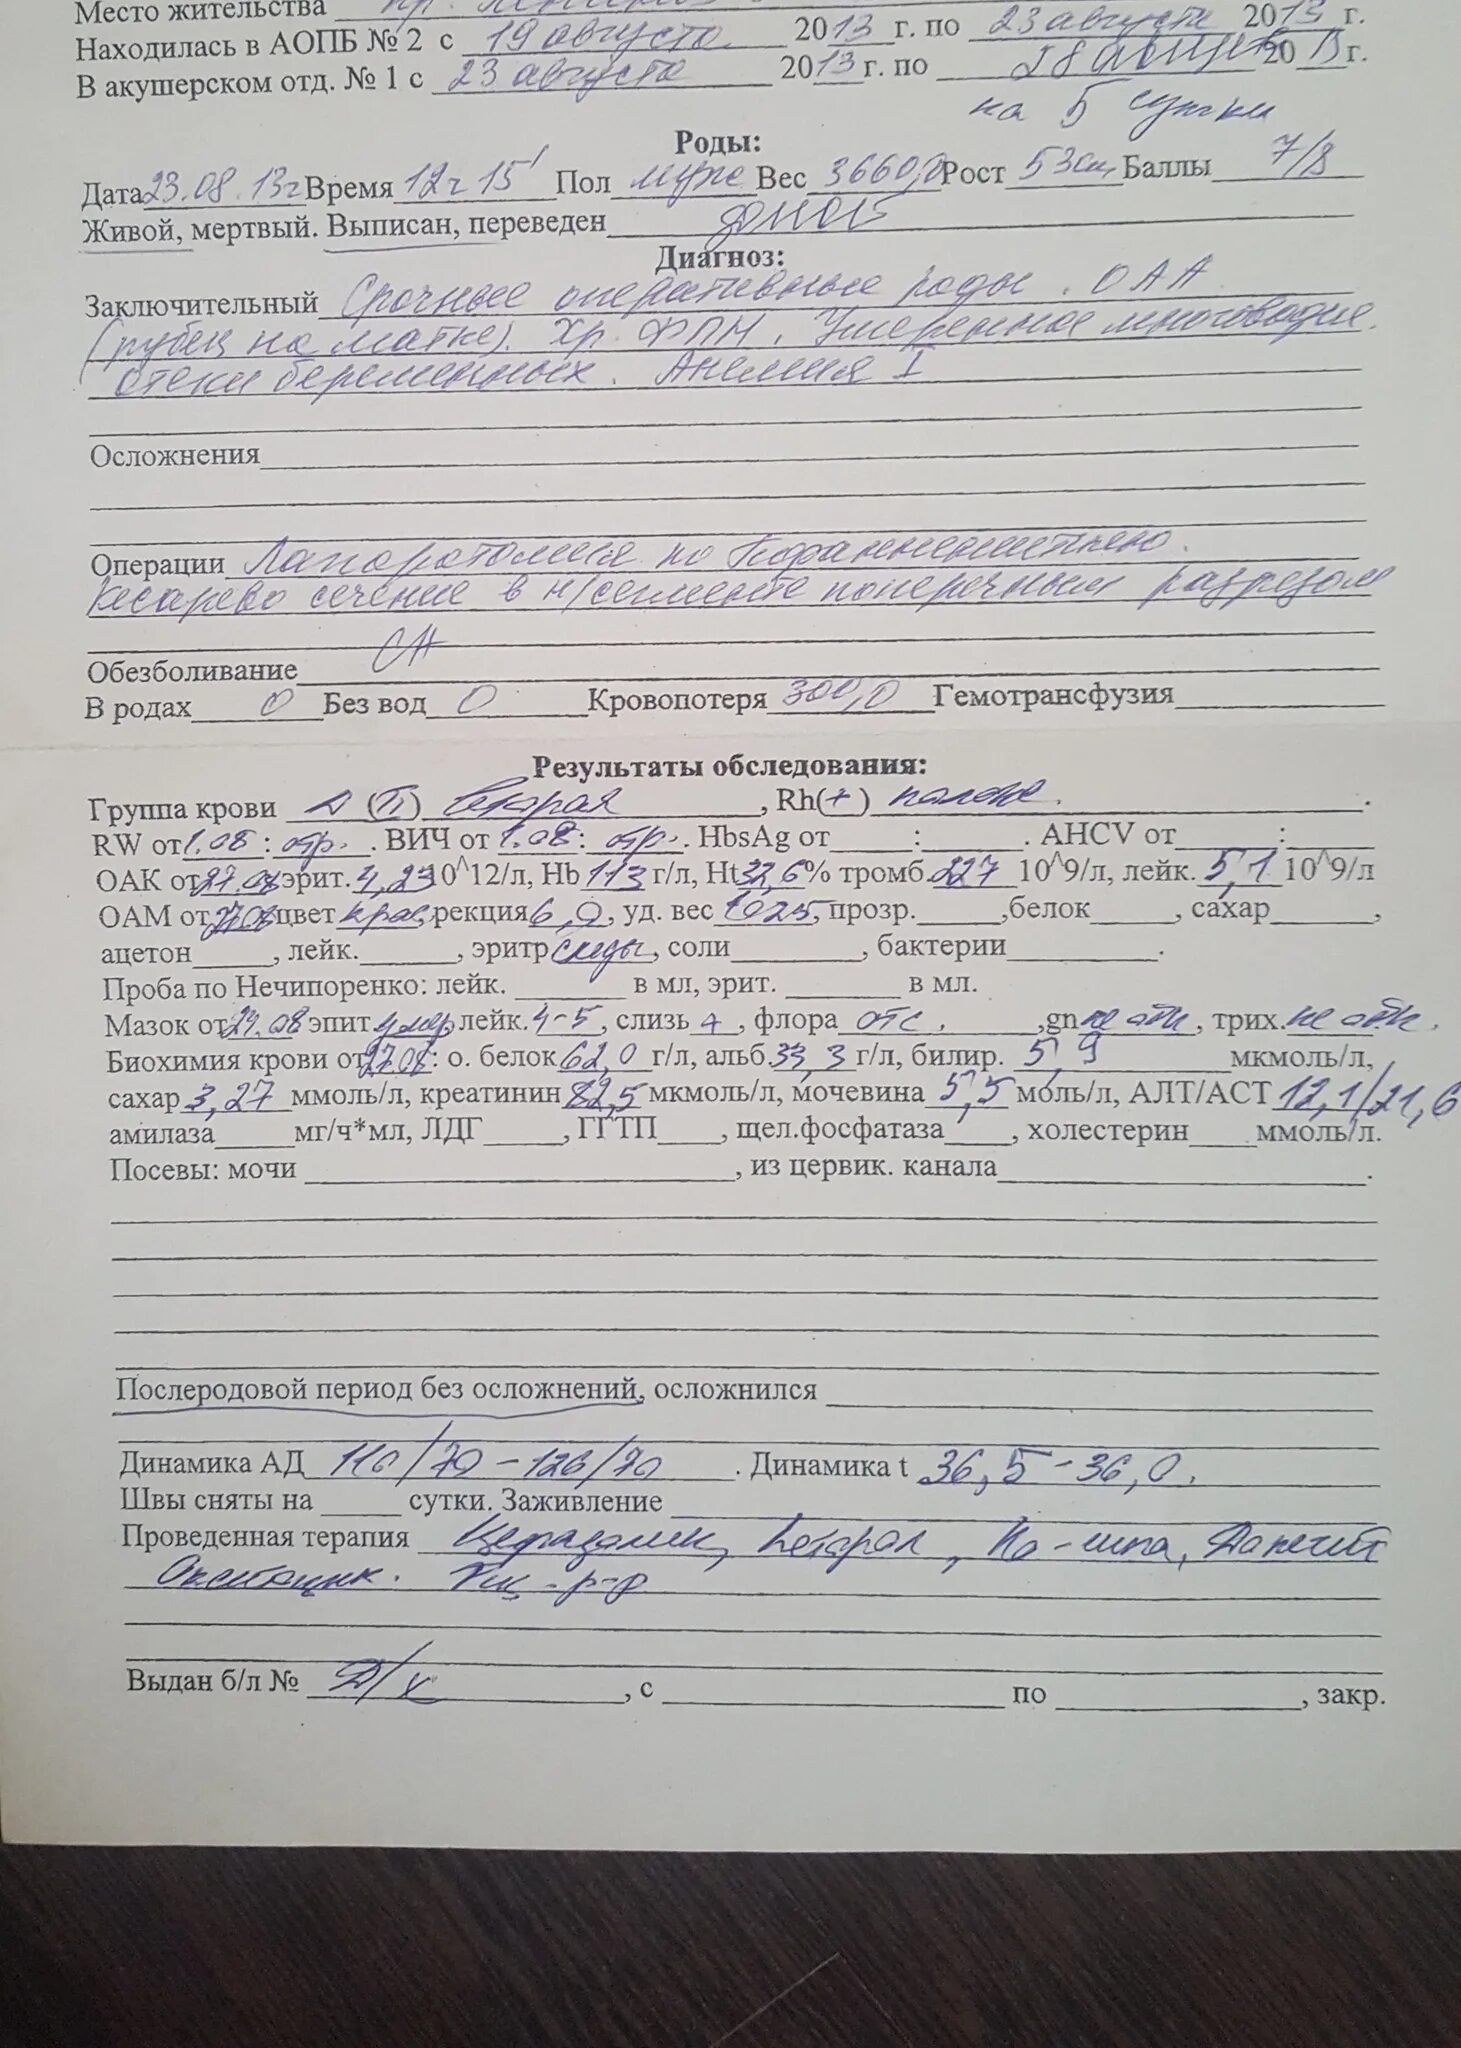 Место жительства пр.
Находилась в АОПБ № 2 с 19 августа 2013 г. по 23 августа 2013 г.
В акушерском отд. № 1 с 23 августа 2013 г. по 28 август 2013 г.
на 5 сутки
Роды:
Дата 23.08.13г Время 12ч 15' Пол муж Вес 3660,0 Рост 53см, Баллы 7/8
Живой, мертвый. Выписан, переведен домой
Диагноз:
Заключительный Срочные оперативные роды. ОАА
(рубец на матке). Хр. ФПН. Умеренное многоводие.
Отеки беременных. Анемия I
Осложнения
Операции Лапаротомия по Пфанненштилю.
Кесарево сечение в н/сегменте поперечным разрезом
Обезболивание СА
В родах 0 Без вод 0 Кровопотеря 300,0 Гемотрансфузия
Результаты обследования:
Группа крови A (II) вторая, Rh(+) полож.
RW от 1.08: отр. ВИЧ от 1.08: отр. HbsAg от : . AHCV от :
ОАК от 27.08 эрит. 4,23 10^12/л, Hb 113 г/л, Ht 32,6% тромб. 227 10^9/л, лейк. 5,1 10^9/л
ОАМ от 27.08 цвет крас, рекция 6,0, уд. вес 1025, прозр. , белок , сахар ,
ацетон , лейк. , эритр следы, соли , бактерии .
Проба по Нечипоренко: лейк. в мл, эрит. в мл.
Мазок от 24.08 эпит умер, лейк. 4-5, слизь +, флора отс. , gn не обн, трих. не обн.
Биохимия крови от 27.08: о. белок 62,0 г/л, альб. 33,3 г/л, билир. 5,9 мкмоль/л,
сахар 3,27 ммоль/л, креатинин 82,5 мкмоль/л, мочевина 5,5 моль/л, АЛТ/АСТ 12,1/21,6
амилаза мг/ч*мл, ЛДГ , ГГТП , щел.фосфатаза , холестерин ммоль/л.
Посевы: мочи , из цервик. канала .
Послеродовой период без осложнений, осложнился
Динамика АД 110/70 - 120/70 . Динамика t 36,5 - 36,0.
Швы сняты на сутки. Заживление
Проведенная терапия Цефазолин, Кеторол, Но-шпа,
Окситоцин. Физ-р-р
Выдан б/л № Д/х , с по , закр.